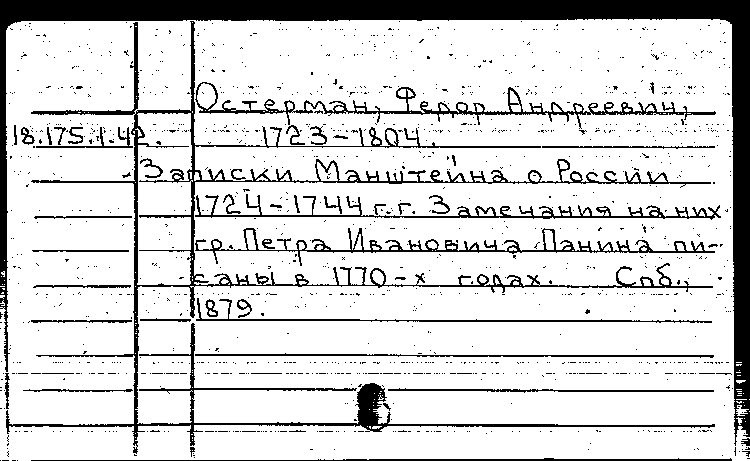 Остерман, Федор Андреевич,
18.175.1.42. 1723-1804.
Записки Манштейна о России
1724-1744 г.г. Замечания на них
гр. Петра Ивановича Панина пи-
саны в 1770-х годах. Спб.,
1879.